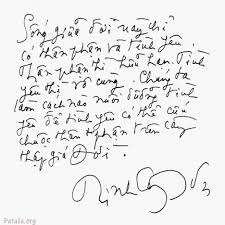 Sống giữa đời này chỉ
có thân phận và tình yêu
Thân phận thì hữu hạn. Tình
yêu thì vô cùng. Chúng ta
làm cách nào nuôi dưỡng tình
yêu để tình yêu có thể cứu
chuộc thân phận trên cây
thập giá Đời.
Trịnh Công Sơn
Patalia.org